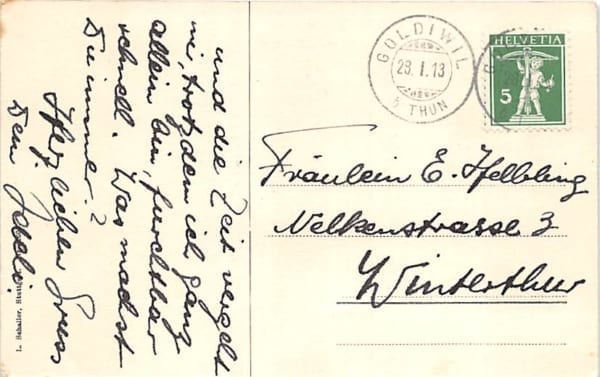 und die Zeit vergeht
mir, trotzdem ich ganz
allein bin, furchtbar
schnell. Was machst
Du immer?
Herzlichen Gruss
Dein
GOLDIWIL
23.I.13
THUN
HELVETIA
5
Fräulein E. Helbling
Nelkenstrasse 3
Winterthur
L. Schaller, Stuttg